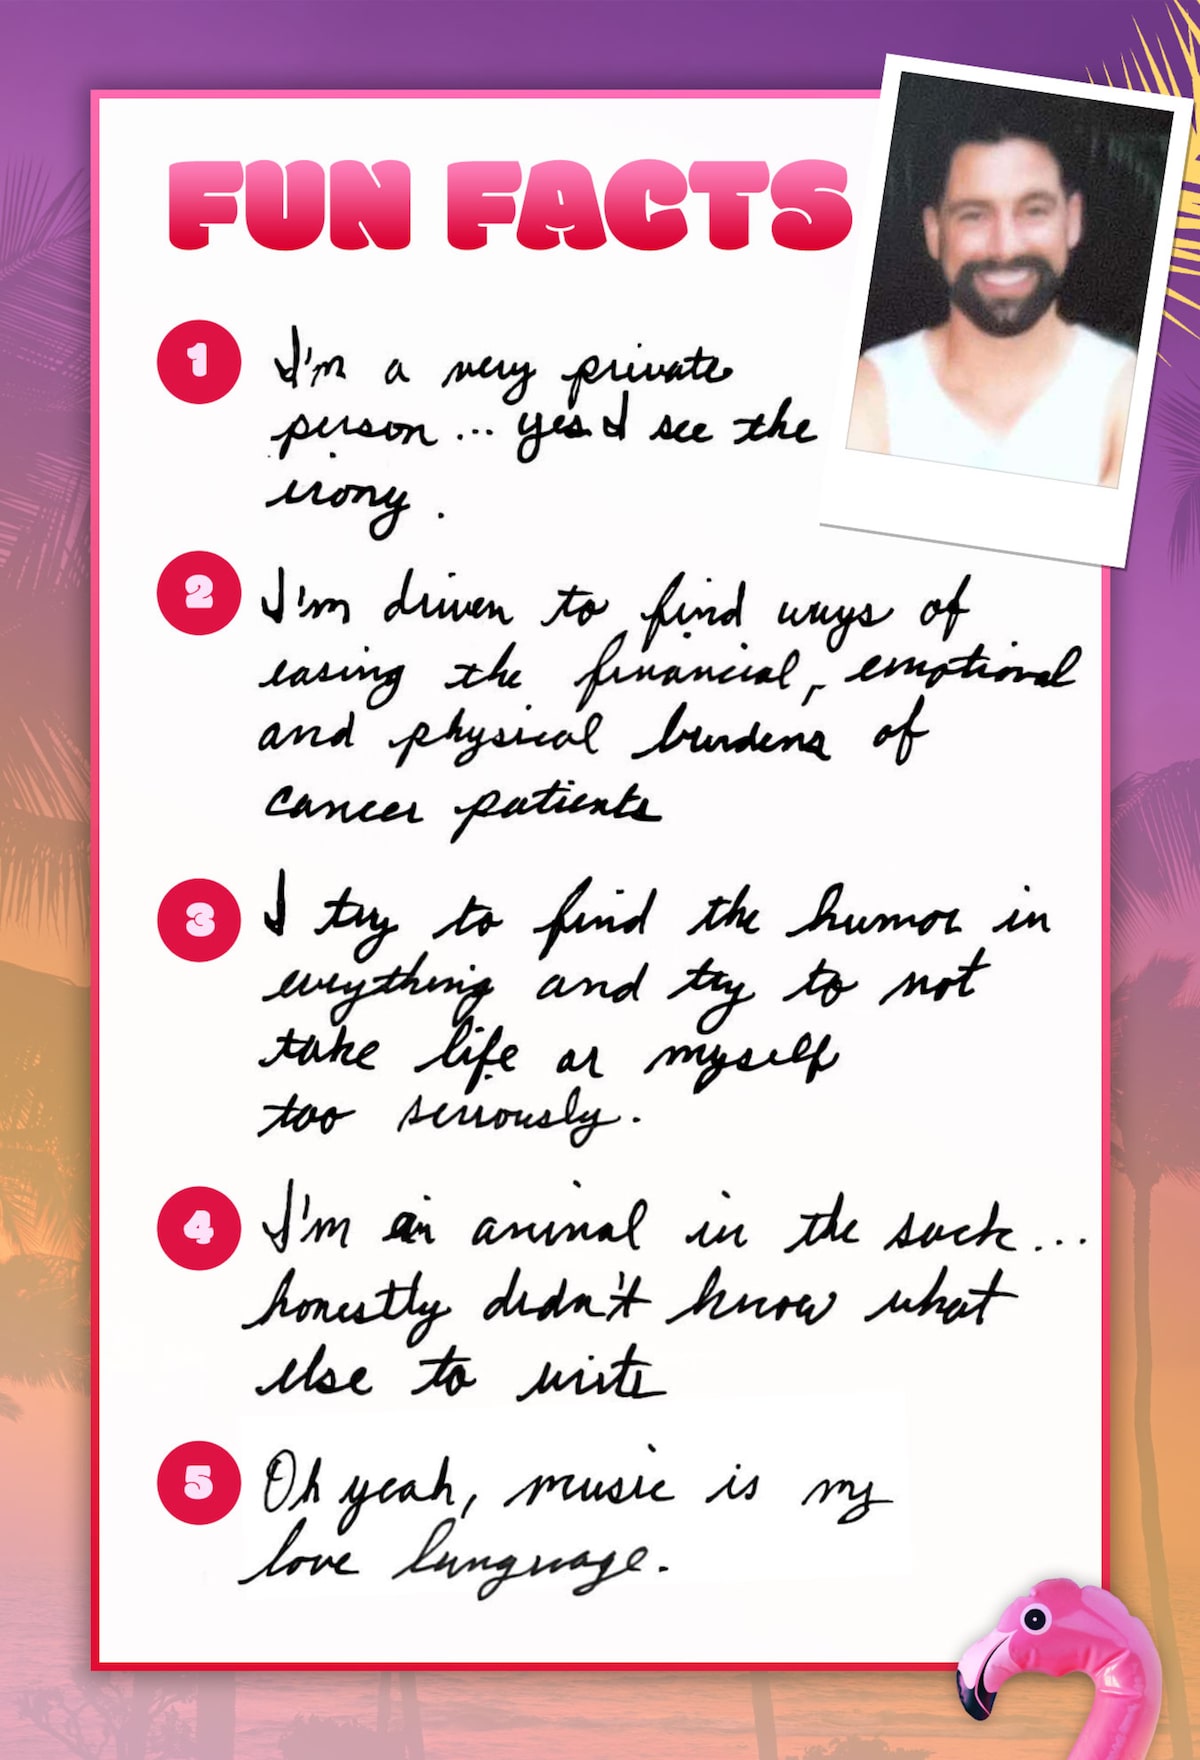 FUN FACTS
1
I'm a very private
person... yes I see the
irony.
2
I'm driven to find ways of
easing the financial, emotional
and physical burdens of
cancer patients
3
I try to find the humor in
everything and try to not
take life or myself
too seriously.
4
I'm an animal in the sack...
honestly didn't know what
else to write
5
Oh yeah, music is my
love language.